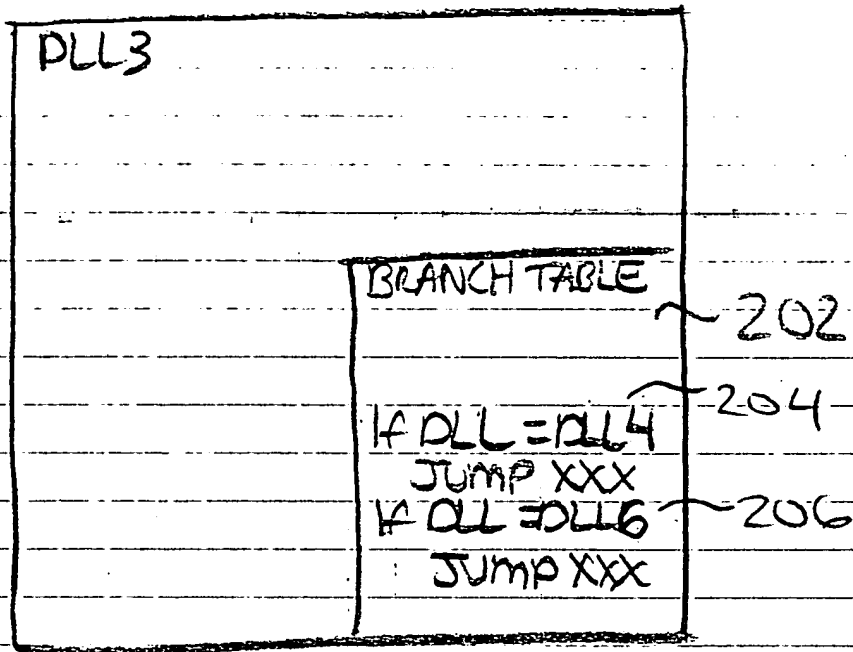 DLL3
BRANCH TABLE
202
204
If DLL = DLL4
JUMP XXX
If DLL = DLL6 206
JUMP XXX